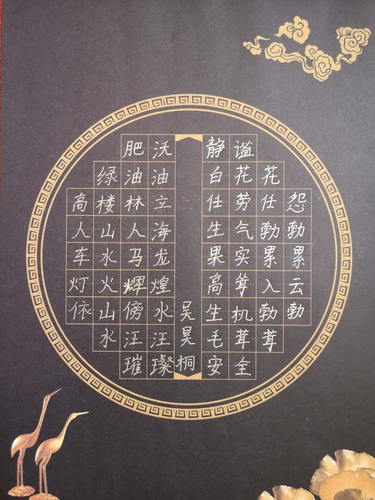 肥沃 静谧
绿油油 白花花
高楼林立 任劳任怨
人山人海 生气勃勃
车水马龙 果实累累
灯火辉煌 高耸入云
依山傍水 生机勃勃
水汪汪 毛茸茸
璀璨 安全
吴昊桐